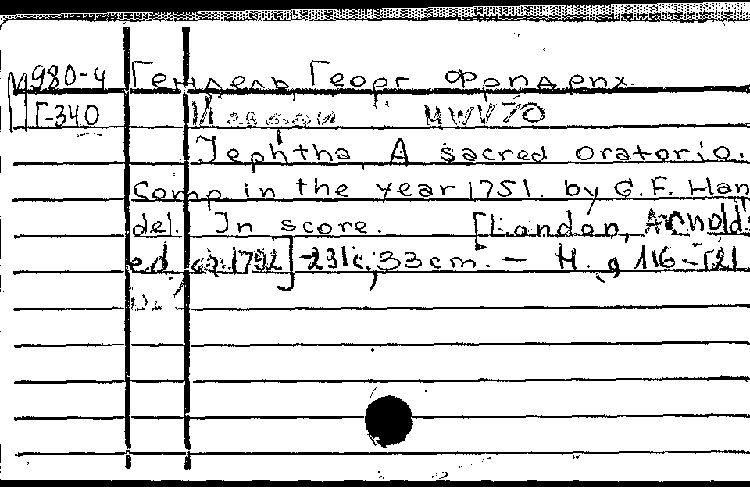 М980-4 Гендель, Георг Фридрих.
Г-340 HWV70
Jephtha. A sacred oratorio.
Comp. in the year 1751. by G.F. Han
del. In score. [London, Arnold's
ed., ca. 1792] 231c.; 33cm. — N. 116-121